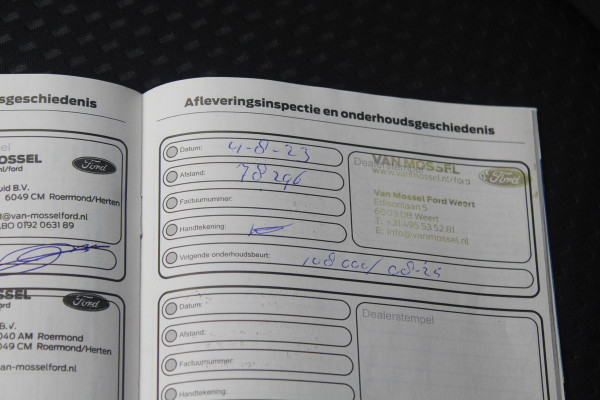 sgeschiedenis
MOSSEL
nl/ford
Ford
uid B.V.
6049 CM Roermond/Herten
d@van-mosselford.nl
LBO 0192 0631 89
SSEL
Ford
B.V.
040 AM Roermond
049 CM Roermond/Herten
van-mosselford.nl
Afleveringsinspectie en onderhoudsgeschiedenis
Datum: 4-8-23
Afstand: 78296
Factuurnummer:
Handtekening:
Volgende onderhoudsbeurt: 108000/08-25
Dealerstempel
VAN MOSSEL
www.vanmossel.nl/ford
Ford
Van Mossel Ford Weert
Edisonlaan 5
6003 DB Weert
T: +31 495 53 52 81
E: info@vanmossel.nl
Datum:
Afstand:
Factuurnummer:
Handtekening:
Dealerstempel